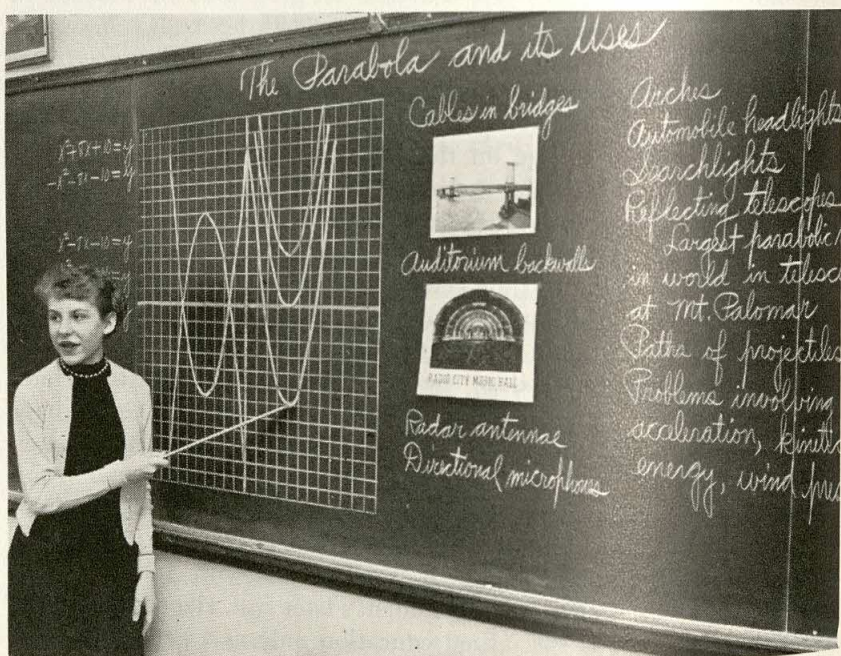 The Parabola and its Uses
x²-5x+10=y
-x²-5x-10=y
x²-5x-10=y
Cables in bridges
Auditorium backwalls
RADIO CITY MUSIC HALL
Radar antennae
Directional microphones
Arches
Automobile headlights
Searchlights
Reflecting telescopes
Largest parabolic
in world in telesc
at Mt. Palomar
Paths of projectiles
Problems involving
acceleration, kinetic
energy, wind pre